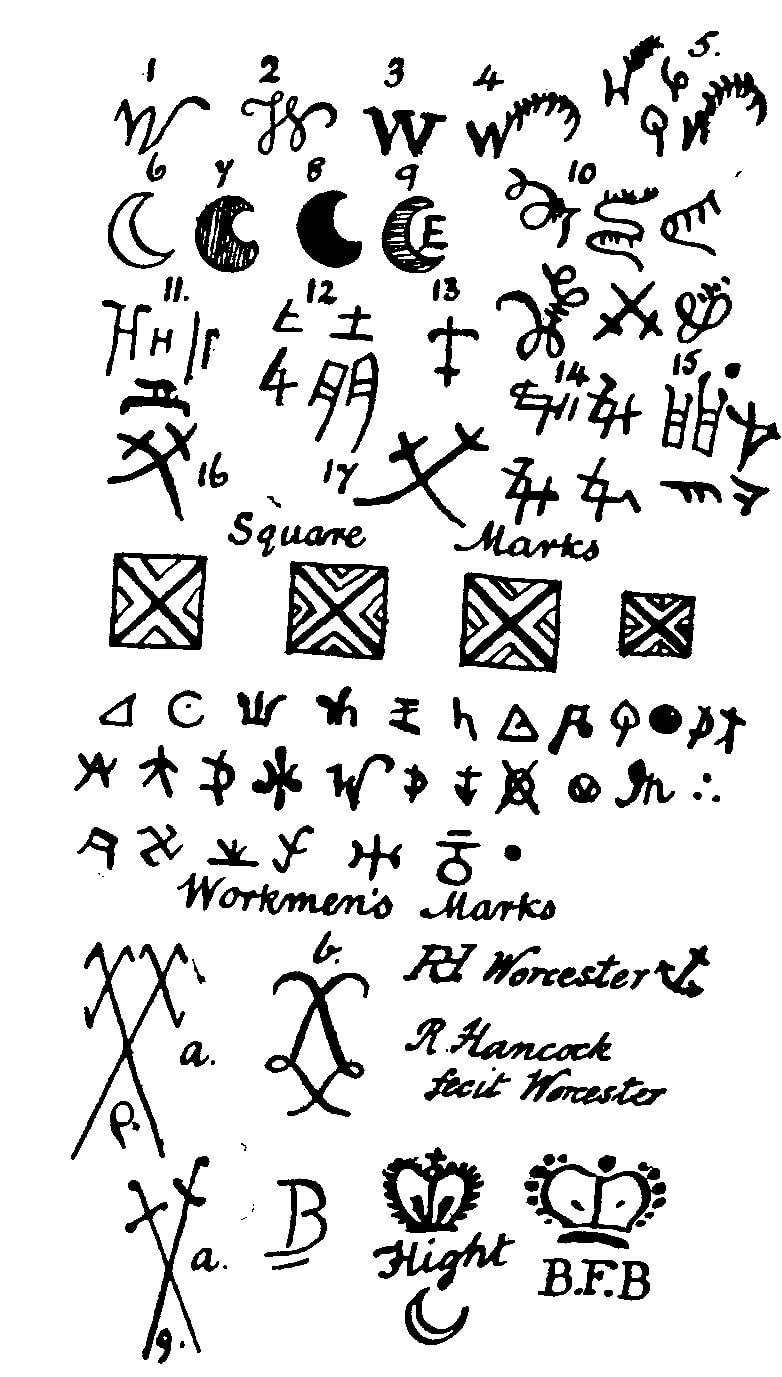 1 2 3 4 5.
W W W W
6 7 8 9 10
E
11. 12 13
H H
14 15
16 17
Square Marks
Workmen's Marks
a. b. RH Worcester
R. Hancock
fecit Worcester
p.
a. B Flight B.F.B
9.